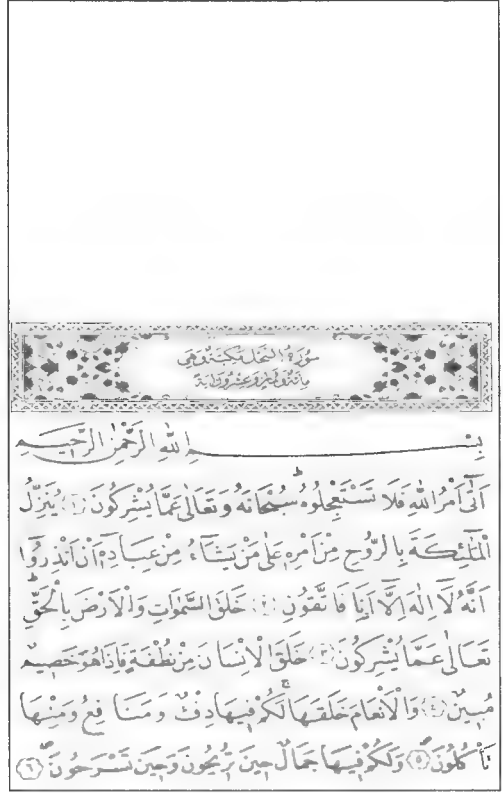 سُورَةُ النَّحْلِ مَكِّيَّةٌ وَهِيَ
مِائَةٌ وَثَمَانٍ وَعِشْرُونَ اٰيَةً
بِسْمِ اللّٰهِ الرَّحْمٰنِ الرَّحِيمِ
اَتٰٓى اَمْرُ اللّٰهِ فَلَا تَسْتَعْجِلُوهُ ۜ سُبْحَانَهُ وَتَعَالٰى عَمَّا يُشْرِكُونَ ﴿١﴾ يُنَزِّلُ
الْمَلٰٓئِكَةَ بِالرُّوحِ مِنْ اَمْرِهِ عَلٰى مَنْ يَشَٓاءُ مِنْ عِبَادِهِٓ اَنْ اَنْذِرُٓوا
اَنَّهُ لَٓا اِلٰهَ اِلَّٓا اَنَا فَاتَّقُونِ ﴿٢﴾ خَلَقَ السَّمٰوَاتِ وَالْاَرْضَ بِالْحَقِّ ۜ
تَعَالٰى عَمَّا يُشْرِكُونَ ﴿٣﴾ خَلَقَ الْاِنْسَانَ مِنْ نُطْفَةٍ فَاِذَا هُوَ خَصِيمٌ
مُبِينٌ ﴿٤﴾ وَالْاَنْعَامَ خَلَقَهَا ۚ لَكُمْ فِيهَا دِفْءٌ وَمَنَافِعُ وَمِنْهَا
تَأْكُلُونَ ﴿٥﴾ وَلَكُمْ فِيهَا جَمَالٌ حِينَ تُرِيحُونَ وَحِينَ تَسْرَحُونَ ﴿٦﴾